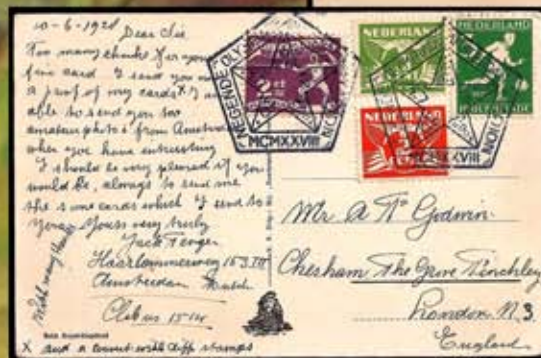 10-6-1928
Dear Sir
Too many thanks for your
fine card I send you now
a proof of my cards X I am
able to send you too
amateur photo's from Amsterdam
when you have interesting
I should be very pleased if you
would be, always to send me
the same cards which I send to
you. Yours very truly
Jack
Haarlemmerweg 153 III
Amsterdam
With many thanks
X and a count with diff stamps
NEGENDE OLYMPIADE
MCMXXVIII
2 ct
NEDERLAND
NEDERLAND
NEDERLAND
MCMXXVIII
Mr A Godwin
Chesham The Grove Finchley
London N. 3
England